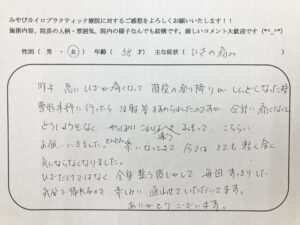 みやびカイロプラクティック療院に対するご感想をよろしくお願いいたします!!
施術内容、院長の人柄・雰囲気、院内の様子なんでも結構です。嬉しいコメント大歓迎です (*^_^*)
性別 ( 男 ・ 女 ) 年齢 ( 58才 ) 主な症状 ( ひざの痛み
昨年 急に ひざが痛くなって 階段の登り降りが しんどくなった時
整形外科に行ったら 注射等すすめられたのですが 余計に痛くなって
どうしようもなく
お願いにきました。 楽になってきて 今では とても軽く全く
気にならなくなりました。
ひざだけではなく 全身 整う感じがして、毎回 すっきりした
気分で帰れるので 楽しみに 通わせていただいてます。
ありがとうございます。